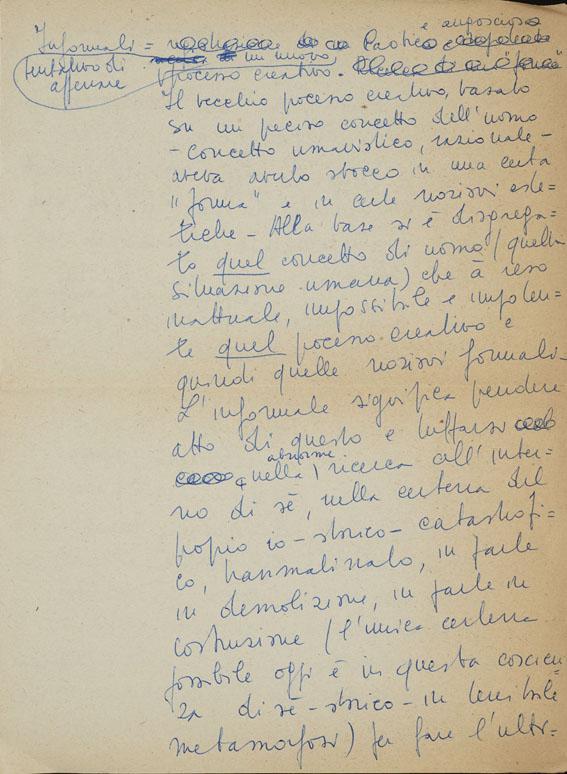 è angosciosa
Informali = caotico e
tentativo di un nuovo
afferrare processo creativo.
Il vecchio pocesso creativo, basato
su un peciso concetto dell'uomo
- concetto umanistico, razionale -
aveva avuto sbocco in una certa
"forma" e in certe nozioni este=
tiche - Alla base si è disgrega=
to quel concetto di uomo (quella
situazione umana) che à reso
inattuale, impossibile e impoten=
te quel pocesso creativo e
quindi quelle nozioni formali.
L'informale significa prendere
atto di questo e buttarsi
nella ricerca all'inter=
no di sé, nella certezza del
popio io-storico-catastrofi=
co, traumatizzato, in parte
in demolizione, in parte in
costruzione (l'unica certezza
possibile oggi è in questa coscien
za di sé-storico-in terribile
metamorfosi) per fare l'ultr=